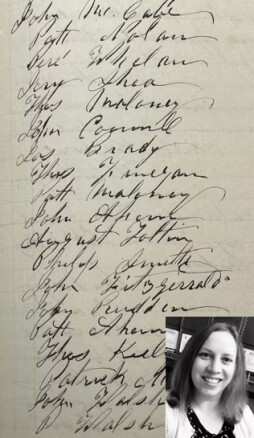 John Mc. Cabe
Patt Nolan
Dere' Whelan
Jery Shea
Thos Moloney
John Connell
Jas Brady
Thos Finegan
Patt Maloney
John Ahern
August
Smith
John Fitzgerrald
John
Patt Ahern
Thos
Patrick
John Walsh
P Walsh